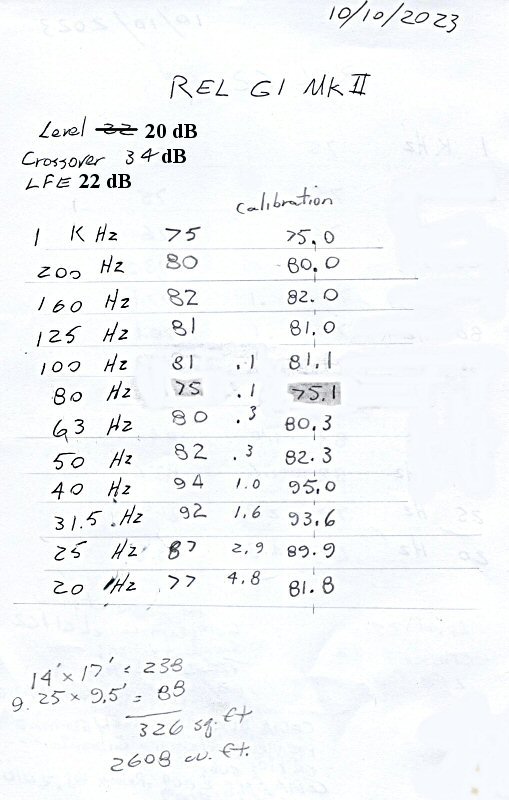 10/10/2023
REL G1 MK II
Level 22 20 dB
Crossover 34 dB
LFE 22 dB
calibration
1 K Hz 75 75.0
200 Hz 80 80.0
160 Hz 82 82.0
125 Hz 81 81.0
100 Hz 81 .1 81.1
80 Hz 75 .1 75.1
63 Hz 80 .3 80.3
50 Hz 82 .3 82.3
40 Hz 94 1.0 95.0
31.5 Hz 92 1.6 93.6
25 Hz 87 2.9 89.9
20 Hz 77 4.8 81.8
14' x 17' = 238
9.25 x 9.5' = 88
326 sq. ft
2608 cu. ft.